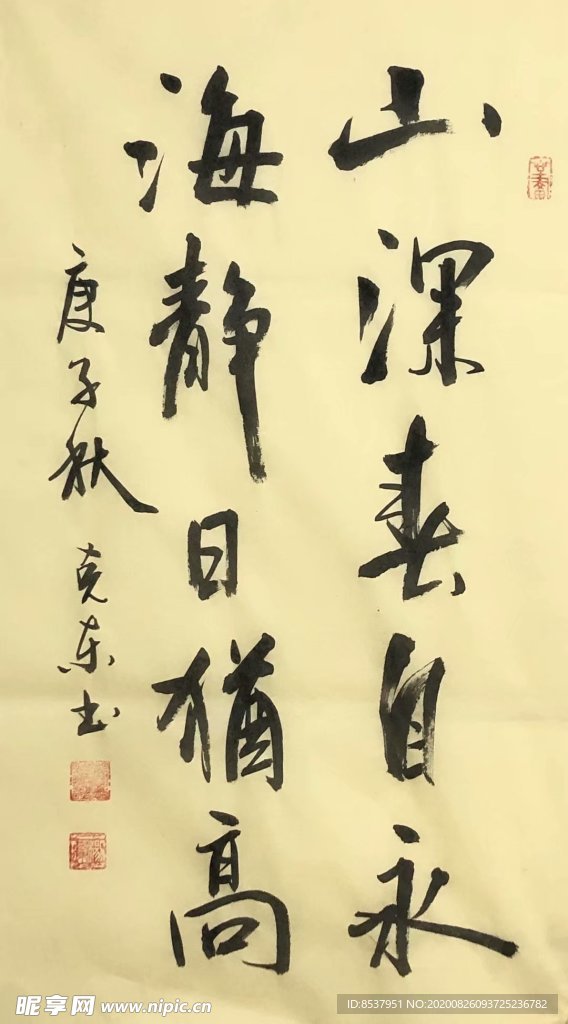 山深春自永
海静日猶高
庚子秋
克东书
昵享网 www.nipic.cn
ID:8537951 NO:20200826093725236782